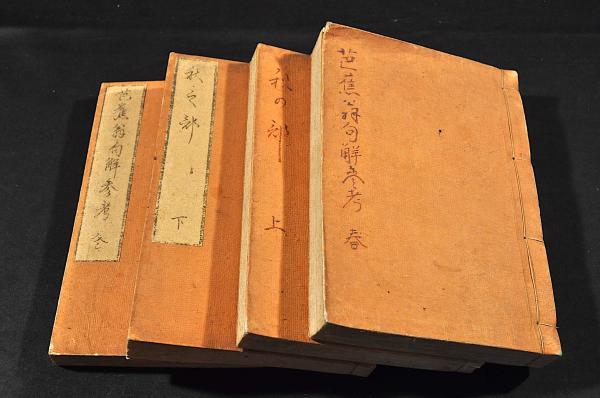 芭蕉翁句解参考 春
秋の部 上
秋之部 下
芭蕉翁句解参考